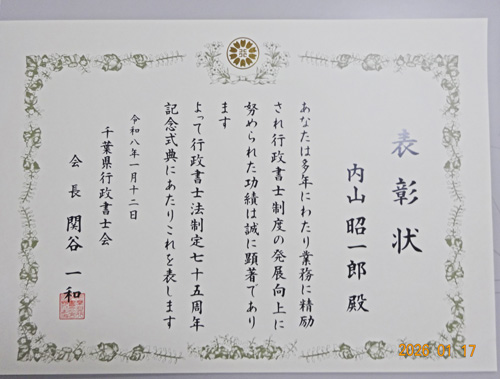 表彰状
内山昭一郎殿
あなたは多年にわたり業務に精励
され行政書士制度の発展向上に
努められた功績は誠に顕著であり
ます
よって行政書士法制定七十五周年
記念式典にあたりこれを表します
令和八年一月十二日
千葉県行政書士会
会長 関谷一和